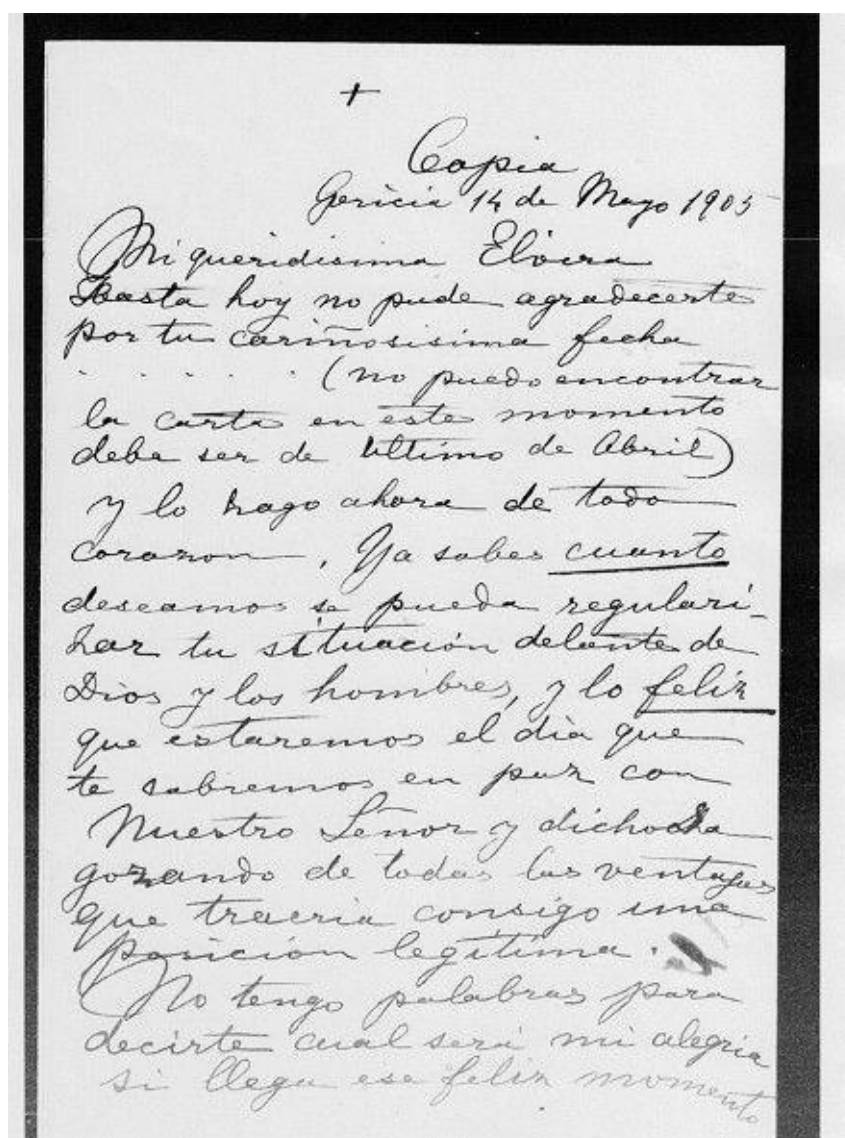 +
Copia
Goricia 14 de Mayo 1905
Mi queridisima Elvira
Hasta hoy no pude agradecerte
por tu cariñosisima fecha
. . . . . (no puedo encontrar
la carta en este momento
debe ser de ultimo de Abril)
y lo hago ahora de todo
corazon, Ya sabes cuanto
deseamos se pueda regulari-
zar tu situación delante de
Dios y los hombres, y lo feliz
que estaremos el dia que
te sabremos en paz con
Nuestro Señor y dichosa
gozando de todas las ventajas
que traeria consigo una
posición legítima.
No tengo palabras para
decirte cual será mi alegria
si llega ese feliz momento